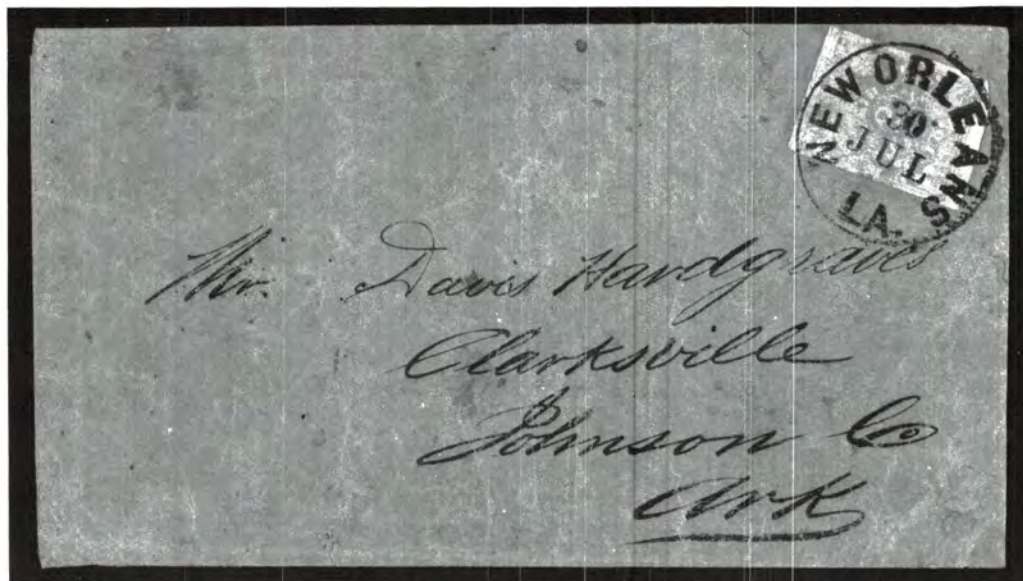 NEW ORLEANS
30
JUL
LA.
Mr. Davis Hardgraves
Clarksville
Johnson Co
Ark